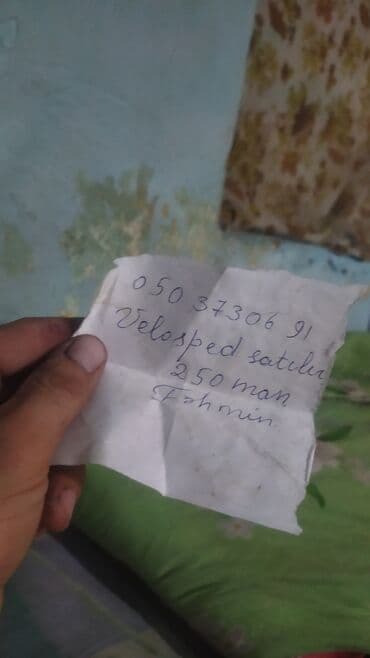 050 37306 91
Velosped satılır
250 man
Təhmin